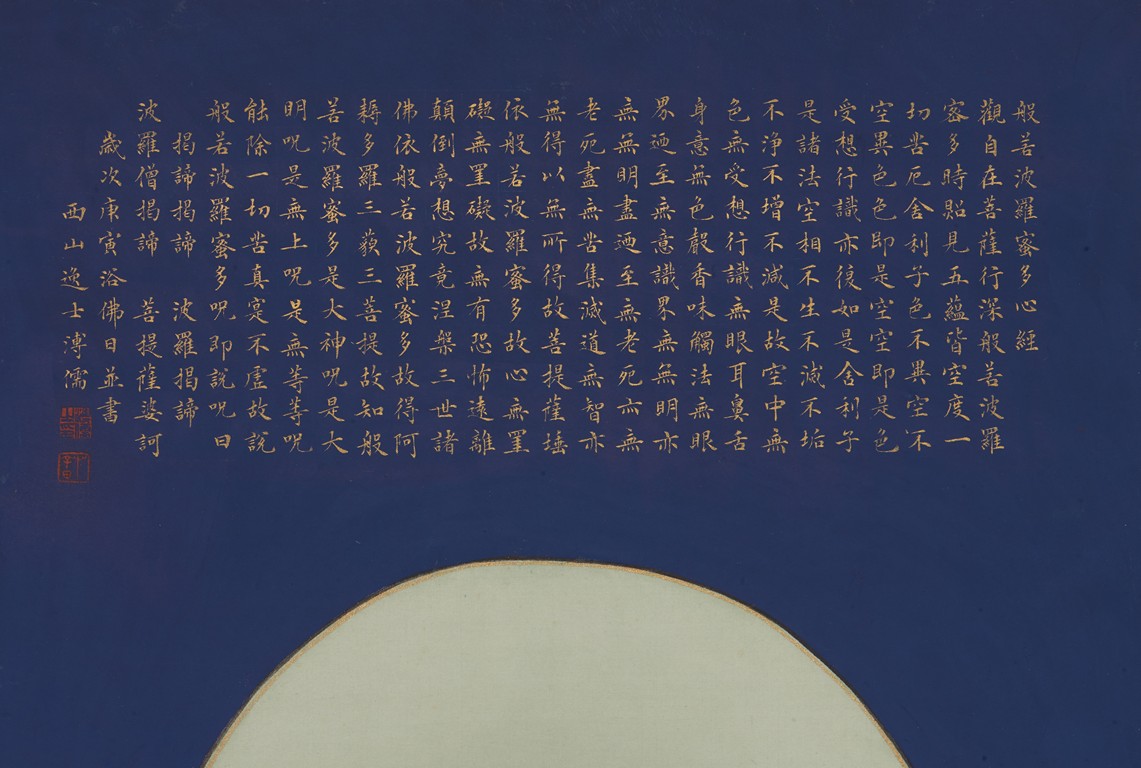 般若波羅蜜多心經
觀自在菩薩行深般若波羅
密多時照見五蘊皆空度一
切苦厄舍利子色不異空不
空異色色即是空空即是色
受想行識亦復如是舍利子
是諸法空相不生不滅不垢
不淨不增不減是故空中無
色無受想行識無眼耳鼻舌
身意無色聲香味觸法無眼
界迺至無意識界無無明亦
無無明盡迺至無老死亦無
老死盡無苦集滅道無智亦
無得以無所得故菩提薩埵
依般若波羅蜜多故心無罣
礙無罣礙故無有恐怖遠離
顛倒夢想究竟涅槃三世諸
佛依般若波羅蜜多故得阿
耨多羅三藐三菩提故知般
若波羅蜜多是大神呪是大
明呪是無上呪是無等等呪
能除一切苦真寔不虛故說
般若波羅蜜多呪即說呪曰
揭諦揭諦 波羅揭諦
波羅僧揭諦 菩提薩婆訶
歲次庚寅浴佛日並書
西山逸士溥儒